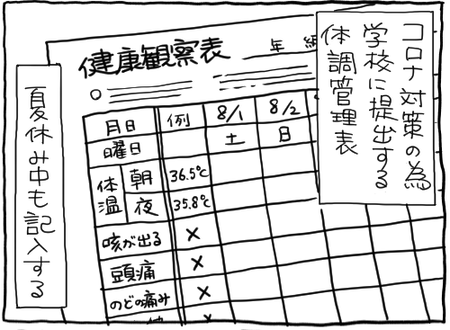 コロナ対策の為
学校に提出する
体調管理表
健康観察表
年 組
月日 例 8/1 8/2
曜日 土 日
体温 朝 36.5℃
夜 35.8℃
咳が出る ×
頭痛 ×
のどの痛み ×
夏休み中も記入する